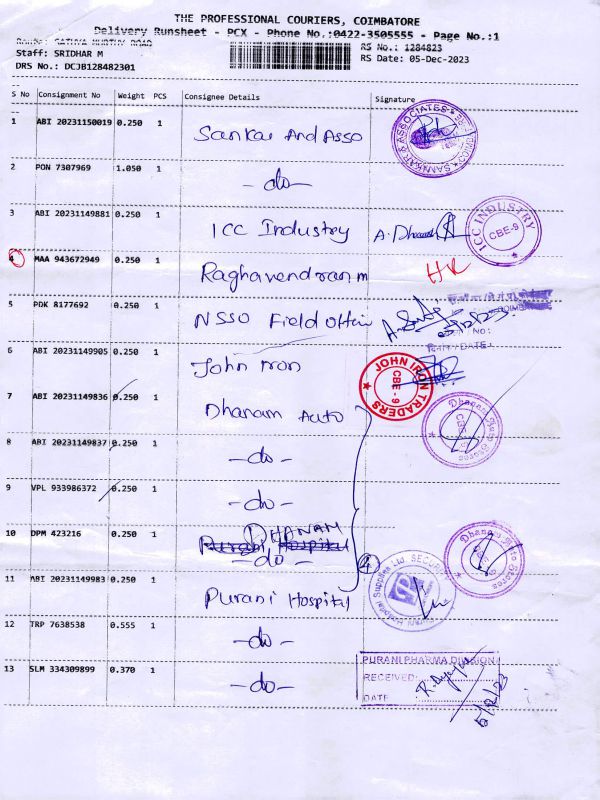 THE PROFESSIONAL COURIERS, COIMBATORE
Delivery Runsheet - PCX - Phone No.:0422-3505555 - Page No.:1
Staff: SRIDHAR M
RS No.: 1284823
DRS No.: DCJB128482301
RS Date: 05-Dec-2023
S No Consignment No Weight PCS Consignee Details Signature
1 ABI 20231150019 0.250 1 Sankar And Asso
SANKAR & ASSOCIATES
2 PON 7307969 1.050 1 - do -
3 ABI 20231149881 0.250 1 ICC Industry
ICC INDUSTRY CBE-9
4 MAA 943672949 0.250 1 Raghavendran m HR
5 PDK 8177692 0.250 1 NSSO Field
6 ABI 20231149905 0.250 1 John Iron
JOHN IRON TRADERS CBE - 9
7 ABI 20231149836 0.250 1 Dhanam Auto
Dhanam Auto Stores
8 ABI 20231149837 0.250 1 - do -
9 VPL 933986372 0.250 1 - do -
10 DPM 423216 0.250 1 DHANAM
- do -
④
Dhanam Auto Stores
11 ABI 20231149983 0.250 1 Purani Hospital
Purani Hospital Supplies Ltd. SECURITY
12 TRP 7638538 0.555 1 - do -
13 SLM 334309899 0.370 1 - do -
PURANI PHARMA DIVISION
RECEIVED:
DATE 5/12/23